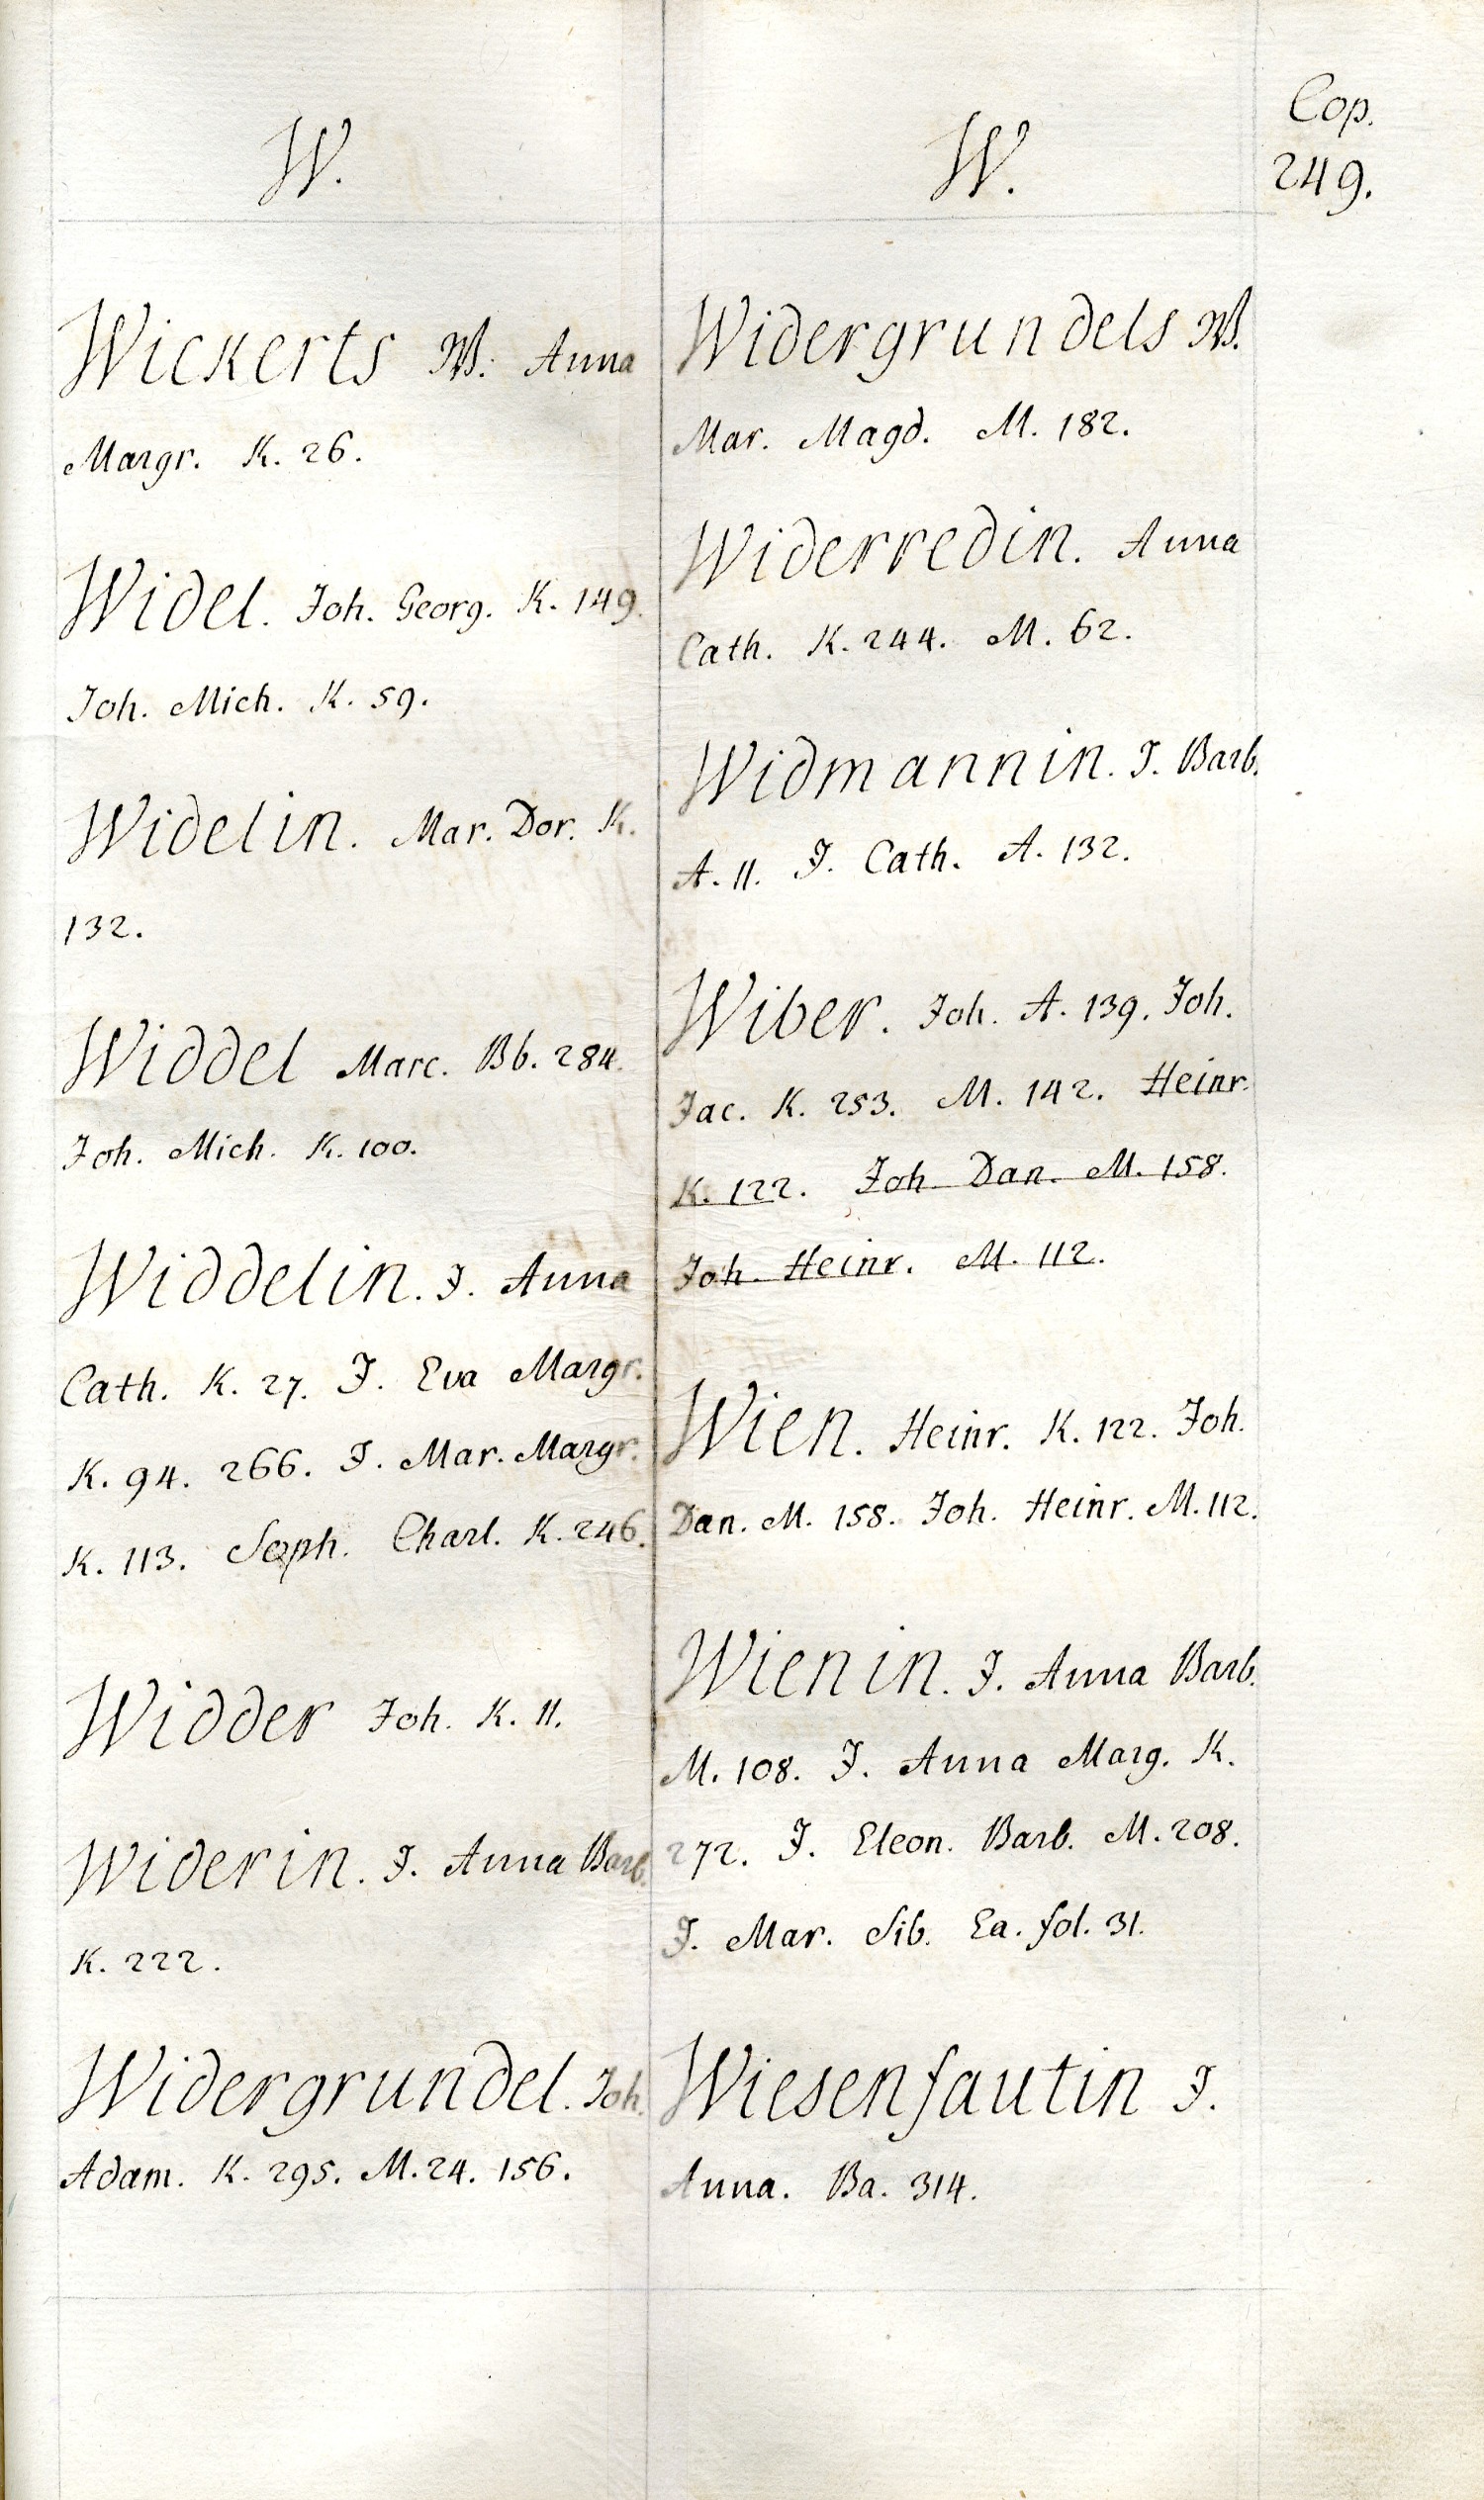 Cop.
249.
W.
Wickerts W. Anna
Margr. K. 26.
Widel. Joh. Georg. K. 149.
Joh. Mich. K. 59.
Widelin. Mar. Dor. K.
132.
Widdel Marc. Bb. 284.
Joh. Mich. K. 100.
Widdelin. J. Anna
Cath. K. 27. J. Eva Margr.
K. 94. 266. J. Mar. Margr.
K. 113. Soph. Charl. K. 246.
Widder Joh. K. 11.
Widerin. J. Anna Barb.
K. 222.
Widergrundel. Joh.
Adam. K. 295. M. 24. 156.
W.
Widergrundels W.
Mar. Magd. M. 182.
Widerredin. Anna
Cath. K. 244. M. 62.
Widmannin. J. Barb.
A. 11. J. Cath. A. 132.
Wiber. Joh. A. 139. Joh.
Jac. K. 253. M. 142. Heinr.
K. 122. Joh Dan. M. 158.
Joh. Heinr. M. 112.
Wien. Heinr. K. 122. Joh.
Dan. M. 158. Joh. Heinr. M. 112.
Wienin. J. Anna Barb.
M. 108. J. Anna Marg. K.
272. J. Eleon. Barb. M. 208.
J. Mar. Sib. Ea. fol. 31.
Wiesenfautin J.
Anna. Ba. 314.